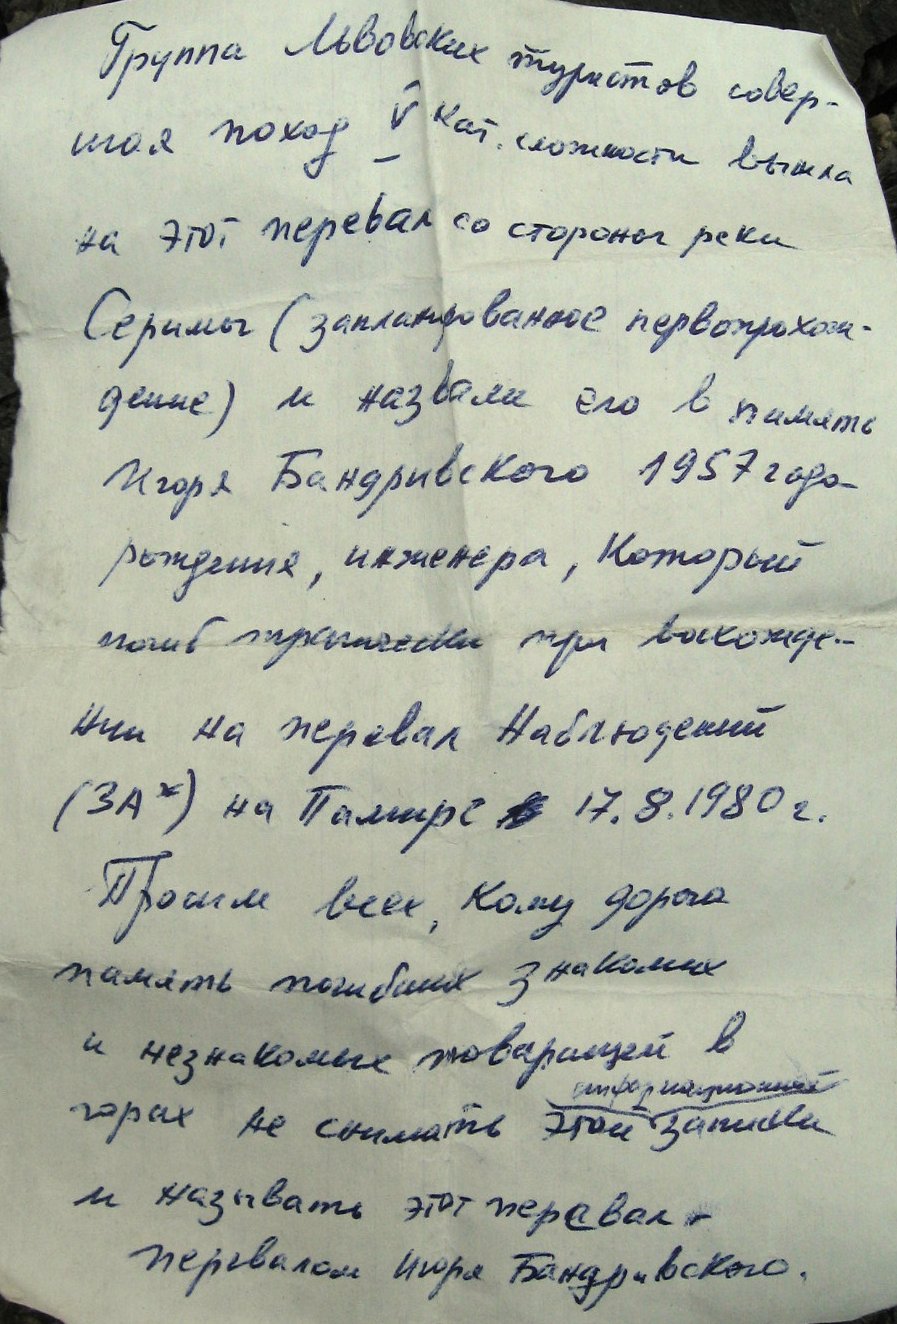 Группа Львовских туристов совер-
шая поход V кат. сложности вышла
на этот перевал со стороны реки
Серимы (запланированное первопрохож-
дение) и назвали его в память
Игоря Бандривского 1957 года
рождения, инженера, который
погиб трагически при восхожде-
нии на перевал Наблюдений
(3А*) на Памире 17.8.1980 г.
Просим всех, кому дорога
память погибших знакомых
и незнакомых товарищей в
информационной
горах не снимать этой записки
и называть этот перевал -
перевалом Игоря Бандривского.